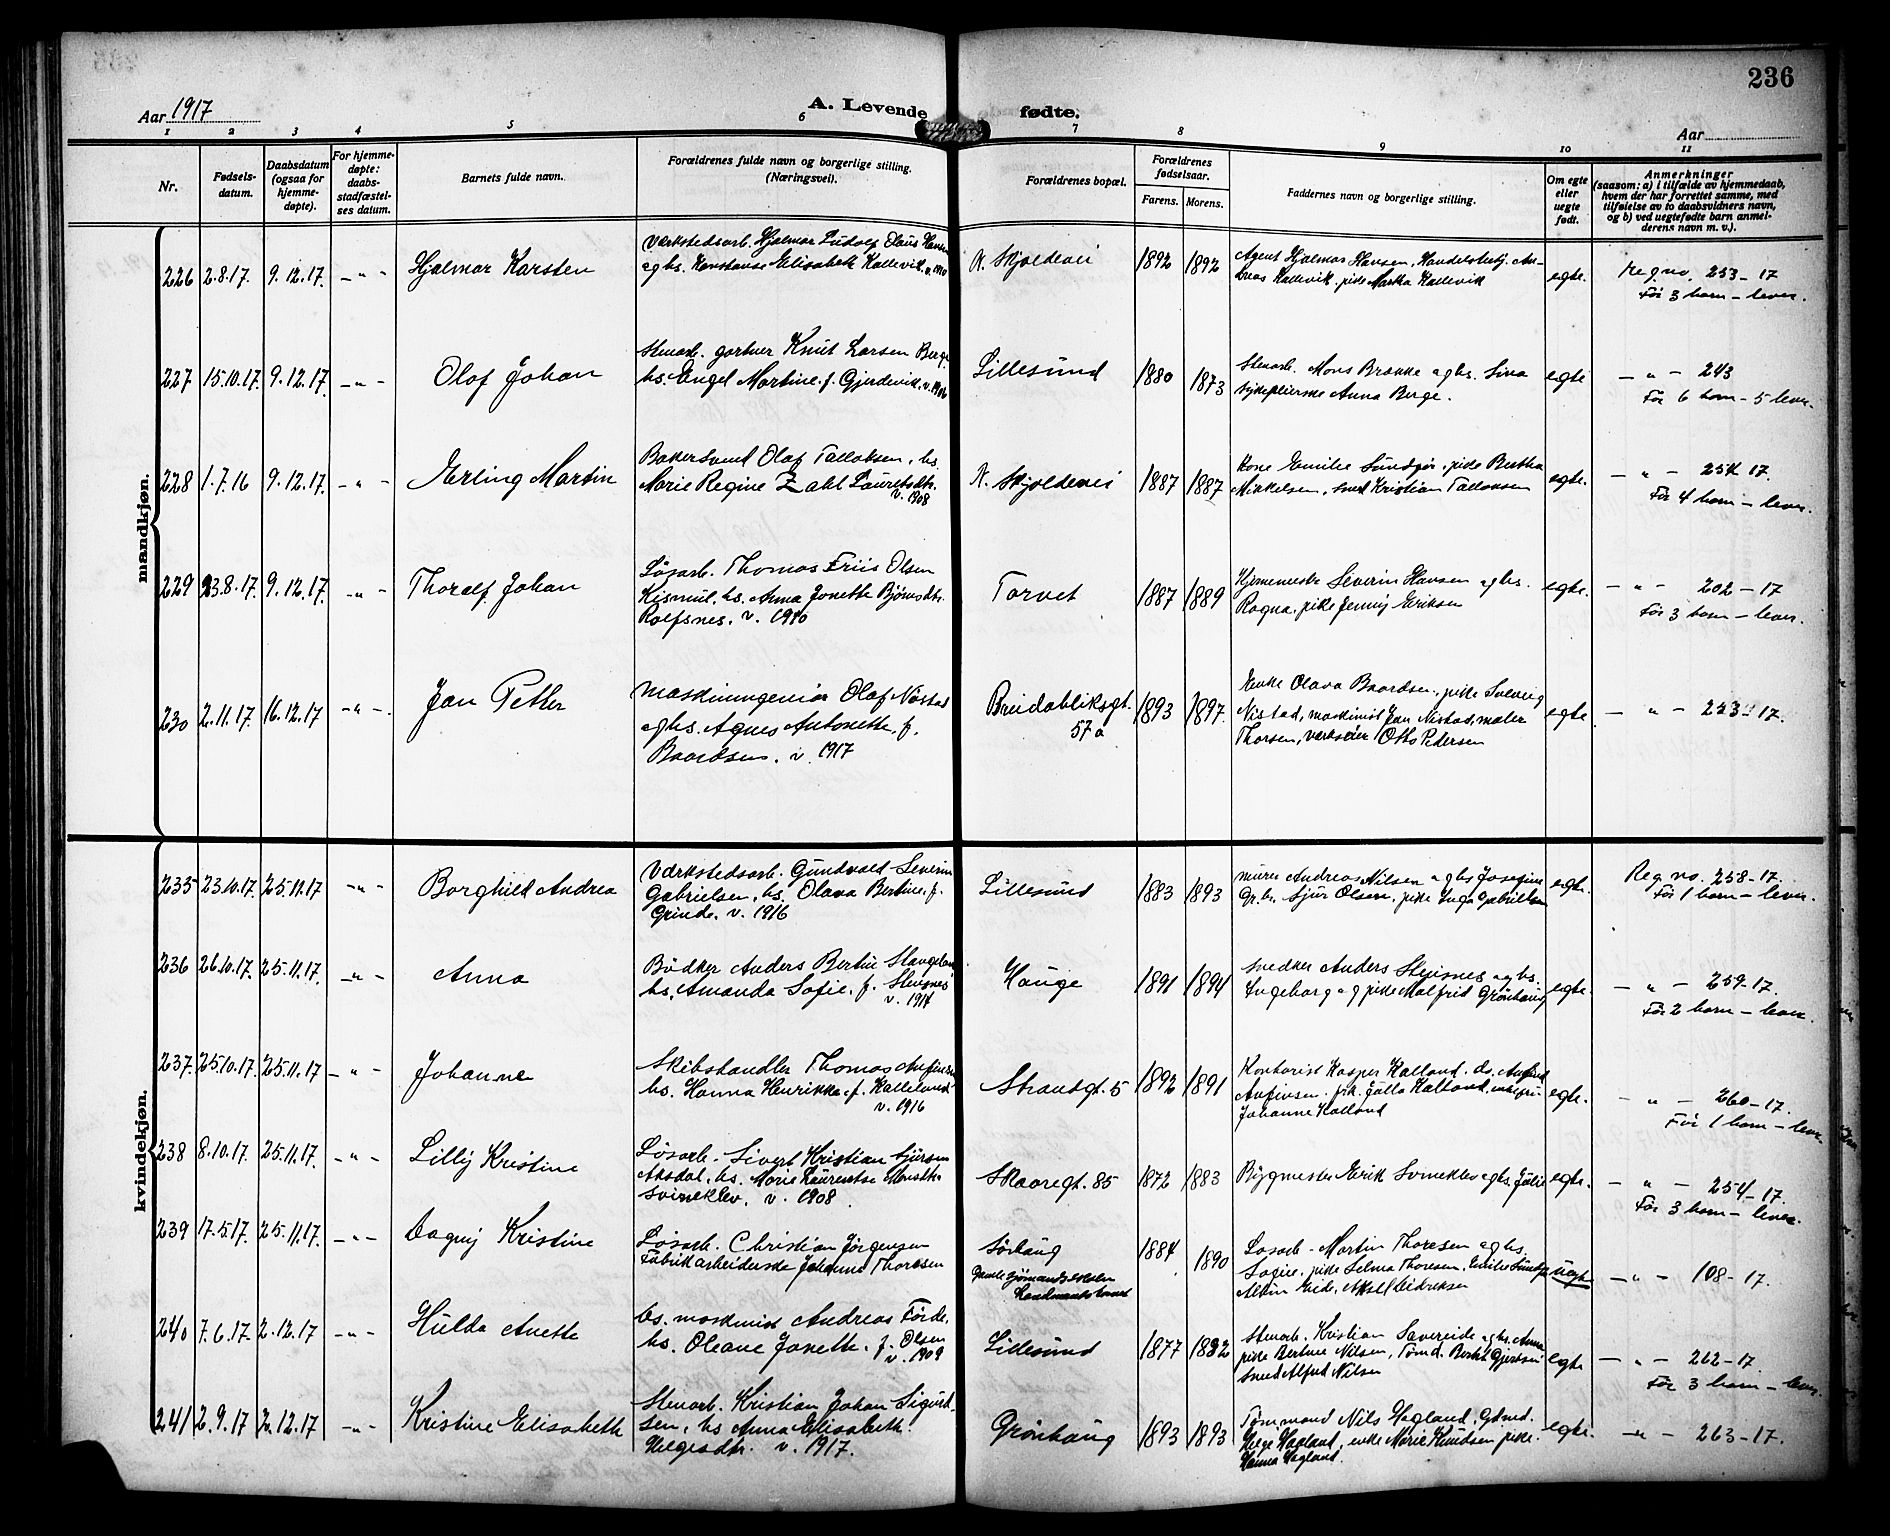 236
Aar 1917
A. Levende fødte.
Aar
1 2 3 4 5 6 7 8 9 10 11
Nr.
Fødsels-
datum.
Daabsdatum
(ogsaa for
hjemme-
døpte).
For hjemme-
døpte:
daabs-
stadfæstel-
ses datum.
Barnets fulde navn.
Forældrenes fulde navn og borgerlige stilling.
(Næringsvei).
Forældrenes bopæl.
Forældrenes
fødselsaar.
Farens. Morens.
Faddernes navn og borgerlige stilling.
Om egte
eller
uegte
født.
Anmerkninger
(saasom: a) i tilfælde av hjemmedaab,
hvem der har forrettet samme, med
tilføielse av to daabsvidners navn,
og b) ved uegtefødte barn anmel-
derens navn m. v.).
mandkjøn.
226 2.8.17. 9.12.17. - " - Hjalmar Karsten
Værkstedsarb. Hjalmar Ludolf Olaus Hansen
og hs. Konstanse Elisabeth Kallevik. v. 1910
N. Skjoldvei 1892 1892
Agent Hjalmar Hansen, Handelsbetj. An-
dreas Kallevik, pike Martha Kallevik
egte.
Reg no. 253-17
Før 3 barn - lever.
227 15.10.17. 9.12.17. - " - Olaf Johan
Stenarb. gartner Knut Larsen Berge
hs. Engel Martine f. Gjerdevik. v. 1906
Lillesund 1880 1873
Stenarb. Mons Brække og hs. Sina
sykepleierske Anna Berge.
egte
- " - 243
Før 6 barn - 5 lever.
228 1.7.16 9.12.17. - " - Erling Martin
Bakersvend Olaf Tallaksen, hs.
Marie Regine Zahl Lauretsdtr.
v. 1908
N. Skjoldvei 1887 1887
Kone Emilie Sundfør, pike Bertha
Mikkelsen, sned. Kristian Tallaksen
egte.
- " - 254 17.
Før 4 barn - lever.
229 23.8.17. 9.12.17. - " - Thoralf Johan
Løsarb. Thomas Friis Olsen
Kismul, hs. Anna Jonette Bjönsdtr.
Rolfsnes. v. 1910
Torvet 1887 1889
Severin Hansen og hs.
Ragna, pike Jenny Eriksen
egte.
- " - 202-17
Før 3 barn - lever.
230 2.11.17. 16.12.17 - " - Jan Petter
Maskiningeniør Olaf Nistad
og hs. Agnes Antonette, f.
Baardsen. v. 1917
Breidabliksgt.
57a
1893 1897.
Enke Olava Baardsen, pike Solveig
Nistad, maskinist Jan Nistad, maler
Thorsen, verkseier Otto Pedersen
egte.
- " - 223-17.
kvindekjøn.
235 23.10.17. 25.11.17 - " - Borghild Andrea
Værkstedsarb. Gundvald Severin
Gabrielsen, hs. Olava Bertine, f.
Grinde. v. 1916
Lillesund 1883 1893
murer Andreas Nilsen og hs Josefine
Sjur Olsen, pike Inga Gabrielsen
egte.
Reg no. 258-17.
Før 1 barn - lever.
236 26.10.17. 25.11.17. - " - Anna
Bødker Anders Bertin Stangeland
hs. Amanda Sofie, f. Stensnes
v. 1914
Hauge 1891 1894
snedker Anders Stensnes og hs.
Ingeborg og pike Malfrid Grönhaug
egte.
- " - 259-17.
Før 2 barn - lever.
237. 25.10.17. 25.11.17 - " - Johanne
Skibshandler Thomas Anfinsen
hs. Hanna Henrikke, f. Kallelund
v. 1916
Strandgt. 5 1892 1891
Kontorist Kasper Kalland, do. Anfind
Anfinsen, pik. Julla Kalland,
Johanne Kalland
egte.
- " - 260-17.
Før 1 barn - lever
238 8.10.17. 25.11.17. - " - Lilly Kristine
Løsarb. Sivert Kristian Sjursen
Aksdal, hs. Marie Laurentse
Svineklev. v. 1908.
Skaaregt. 85 1872 1883
Bygmester Erik Svineklev og hs. Julie
egte.
- " - 254-17.
Før 3 barn - lever.
239 17.5.17. 25.11.17. - " - Dagny Kristine
Løsarb. Christian Jørgensen
Fabrikarbeiderske Johanne Thoresen
Sørhaug
Gamle sjömandsskolen
1884 1890
Løsarb. Martin Thoresen og hs.
Sofie, pike Selma Thoresen, Emilie Sundfør
Alvin Eide, Aksel Didriksen
uegte
- " - 108-17.
240 7.6.17. 2.12.17 - " - Hulda Anette
hs. maskinist Andreas Förde,
hs. Oleane Jonette, f. Olsen
v. 1909
Lillesund 1877 1882
Stenarb. Kristian Savereide og hs. Anna
pike Bertine Nilsen, Tömd. Bertil Gjertsen
sned Alfred Nilsen
egte
- " - 262-17
Før 3 barn - lever.
241 2.9.17 2.12.17 - " - Kristine Elisabeth
Stenarb. Kristian Johan Sigurd-
sen, hs Anna Elisabeth
Helgesdtr. v. 1917.
Grönhaug 1893 1893
Tömmand Nils Hagland, Gdmd.
Helge Hagland, enke Marie Knudsen, pike
Hanna Hagland.
egte.
- " - 263-17.